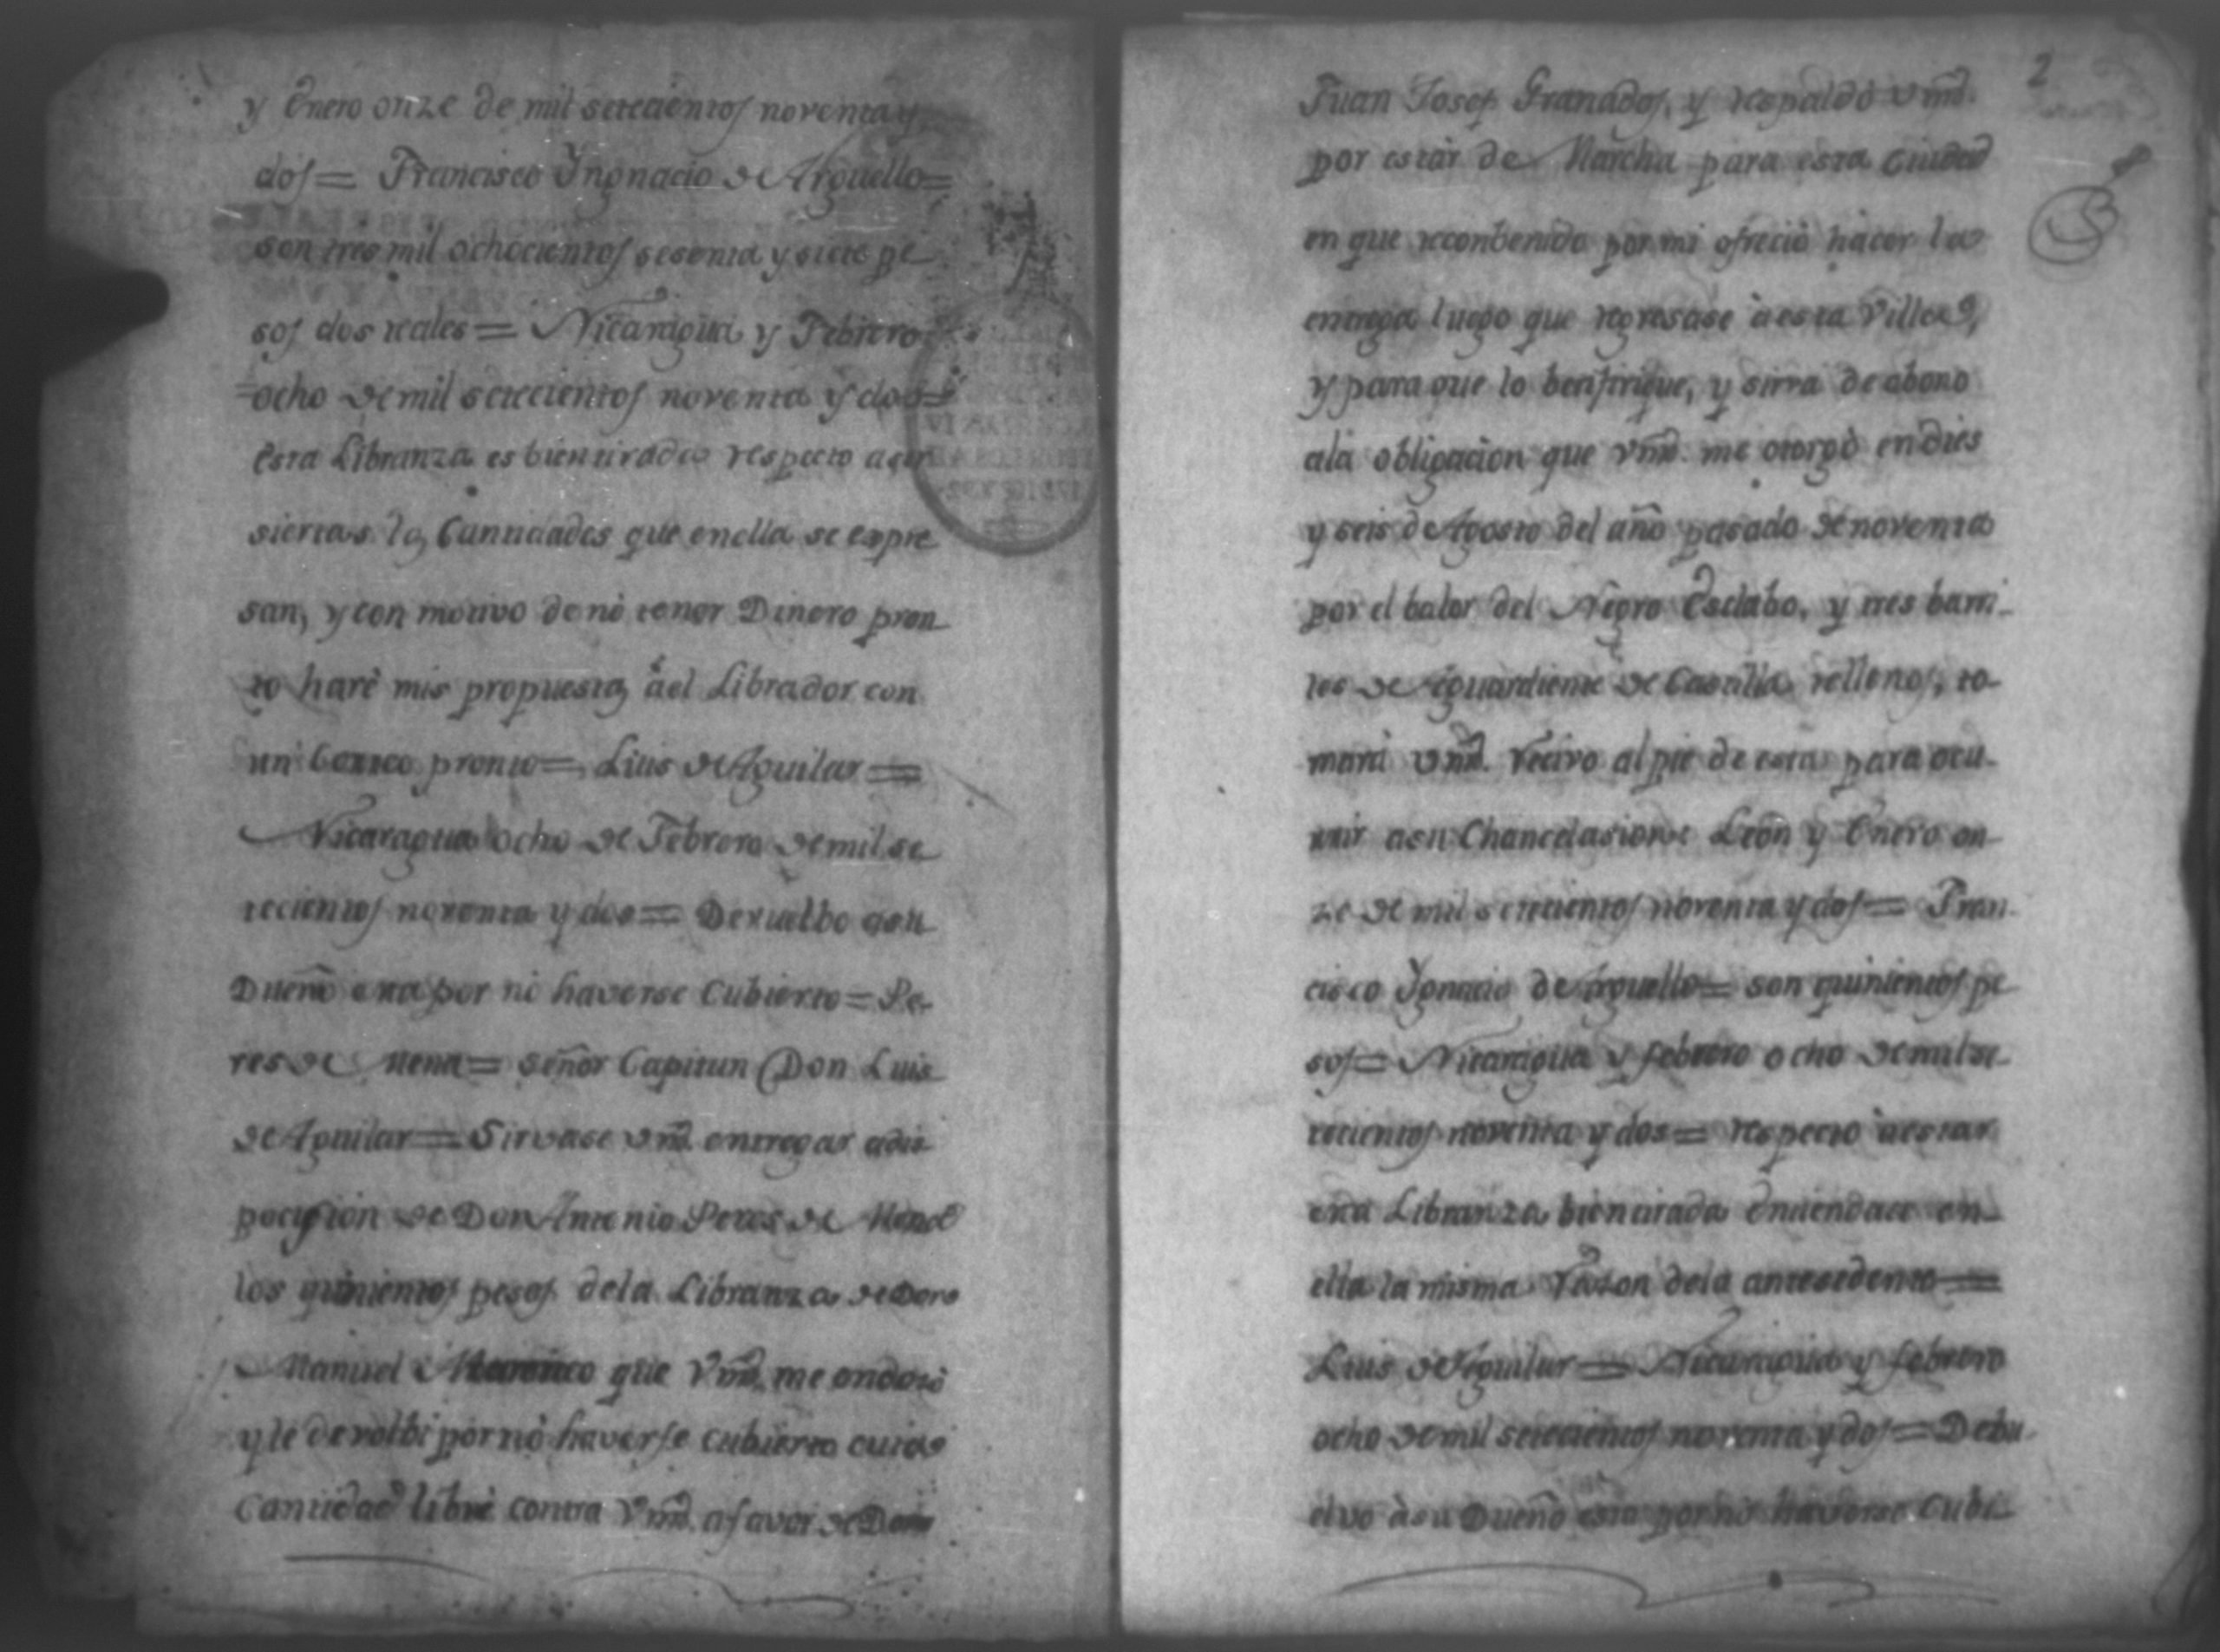 y Enero onze de mil setecientos noventa y
dos = Francisco Ygnacio de Arguello =
son tres mil ochocientos sesenta y siete pe
sos dos reales = Nicaragua y Febrero
ocho de mil setecientos noventa y dos =
esta Libranza es bien tirada respecto a ser
siertas las Cantidades que en ella se expre
san, y con motivo de nó tener Dinero pron
to haré mis propuestas á el Librador con
un pronto = Luis de Aguilar =
Nicaragua ocho de Febrero de mil se
tecientos noventa y dos = Devuelbo a su
Dueño esta por nó haverse Cubierto = Pe-
res de Mena = Señor Capitan Don Luis
de Aguilar = Sirvase Vmd. entregar a dis
pocision de Don Antonio Peres de Mena
los quinientos pesos de la Libranza de Don
Manuel que Vmd. me endozó
y le devolbi por nó haverse cubierto cuia
Cantidad libré contra Vmd. a favor de Don
2
Juan Josef Granados, y respaldó Vmd.
por estar de Marcha para esta Ciudad
en que reconbenido por mi ofreció hacer la
entrega luego que regresase á esta Villa,
y para que lo berifique, y sirva de abono
a la obligacion que Vmd. me otorgó en dies
y seis de Agosto del año pasado de noventa
por el balor del Negro Esclabo, y tres barri-
les de Aguardiente de Castilla rellenos, to-
mará Vmd. recivo al pie de esta para ocu-
rrir a su Chancelasion = Leon y Enero on-
ze de mil setecientos noventa y dos = Fran-
cisco Ygnacio de Arguello = son quinientos pe
sos = Nicaragua y febrero ocho de mil se-
tecientos noventa y dos = respecto á estar
esta Libranza bien tirada entiendace en-
ella la misma razon de la antesedente =
Luis de Aguilar = Nicaragua y febrero
ocho de mil setecientos noventa y dos = Debu-
elvo á su Dueño esta por nó haverse Cubi-